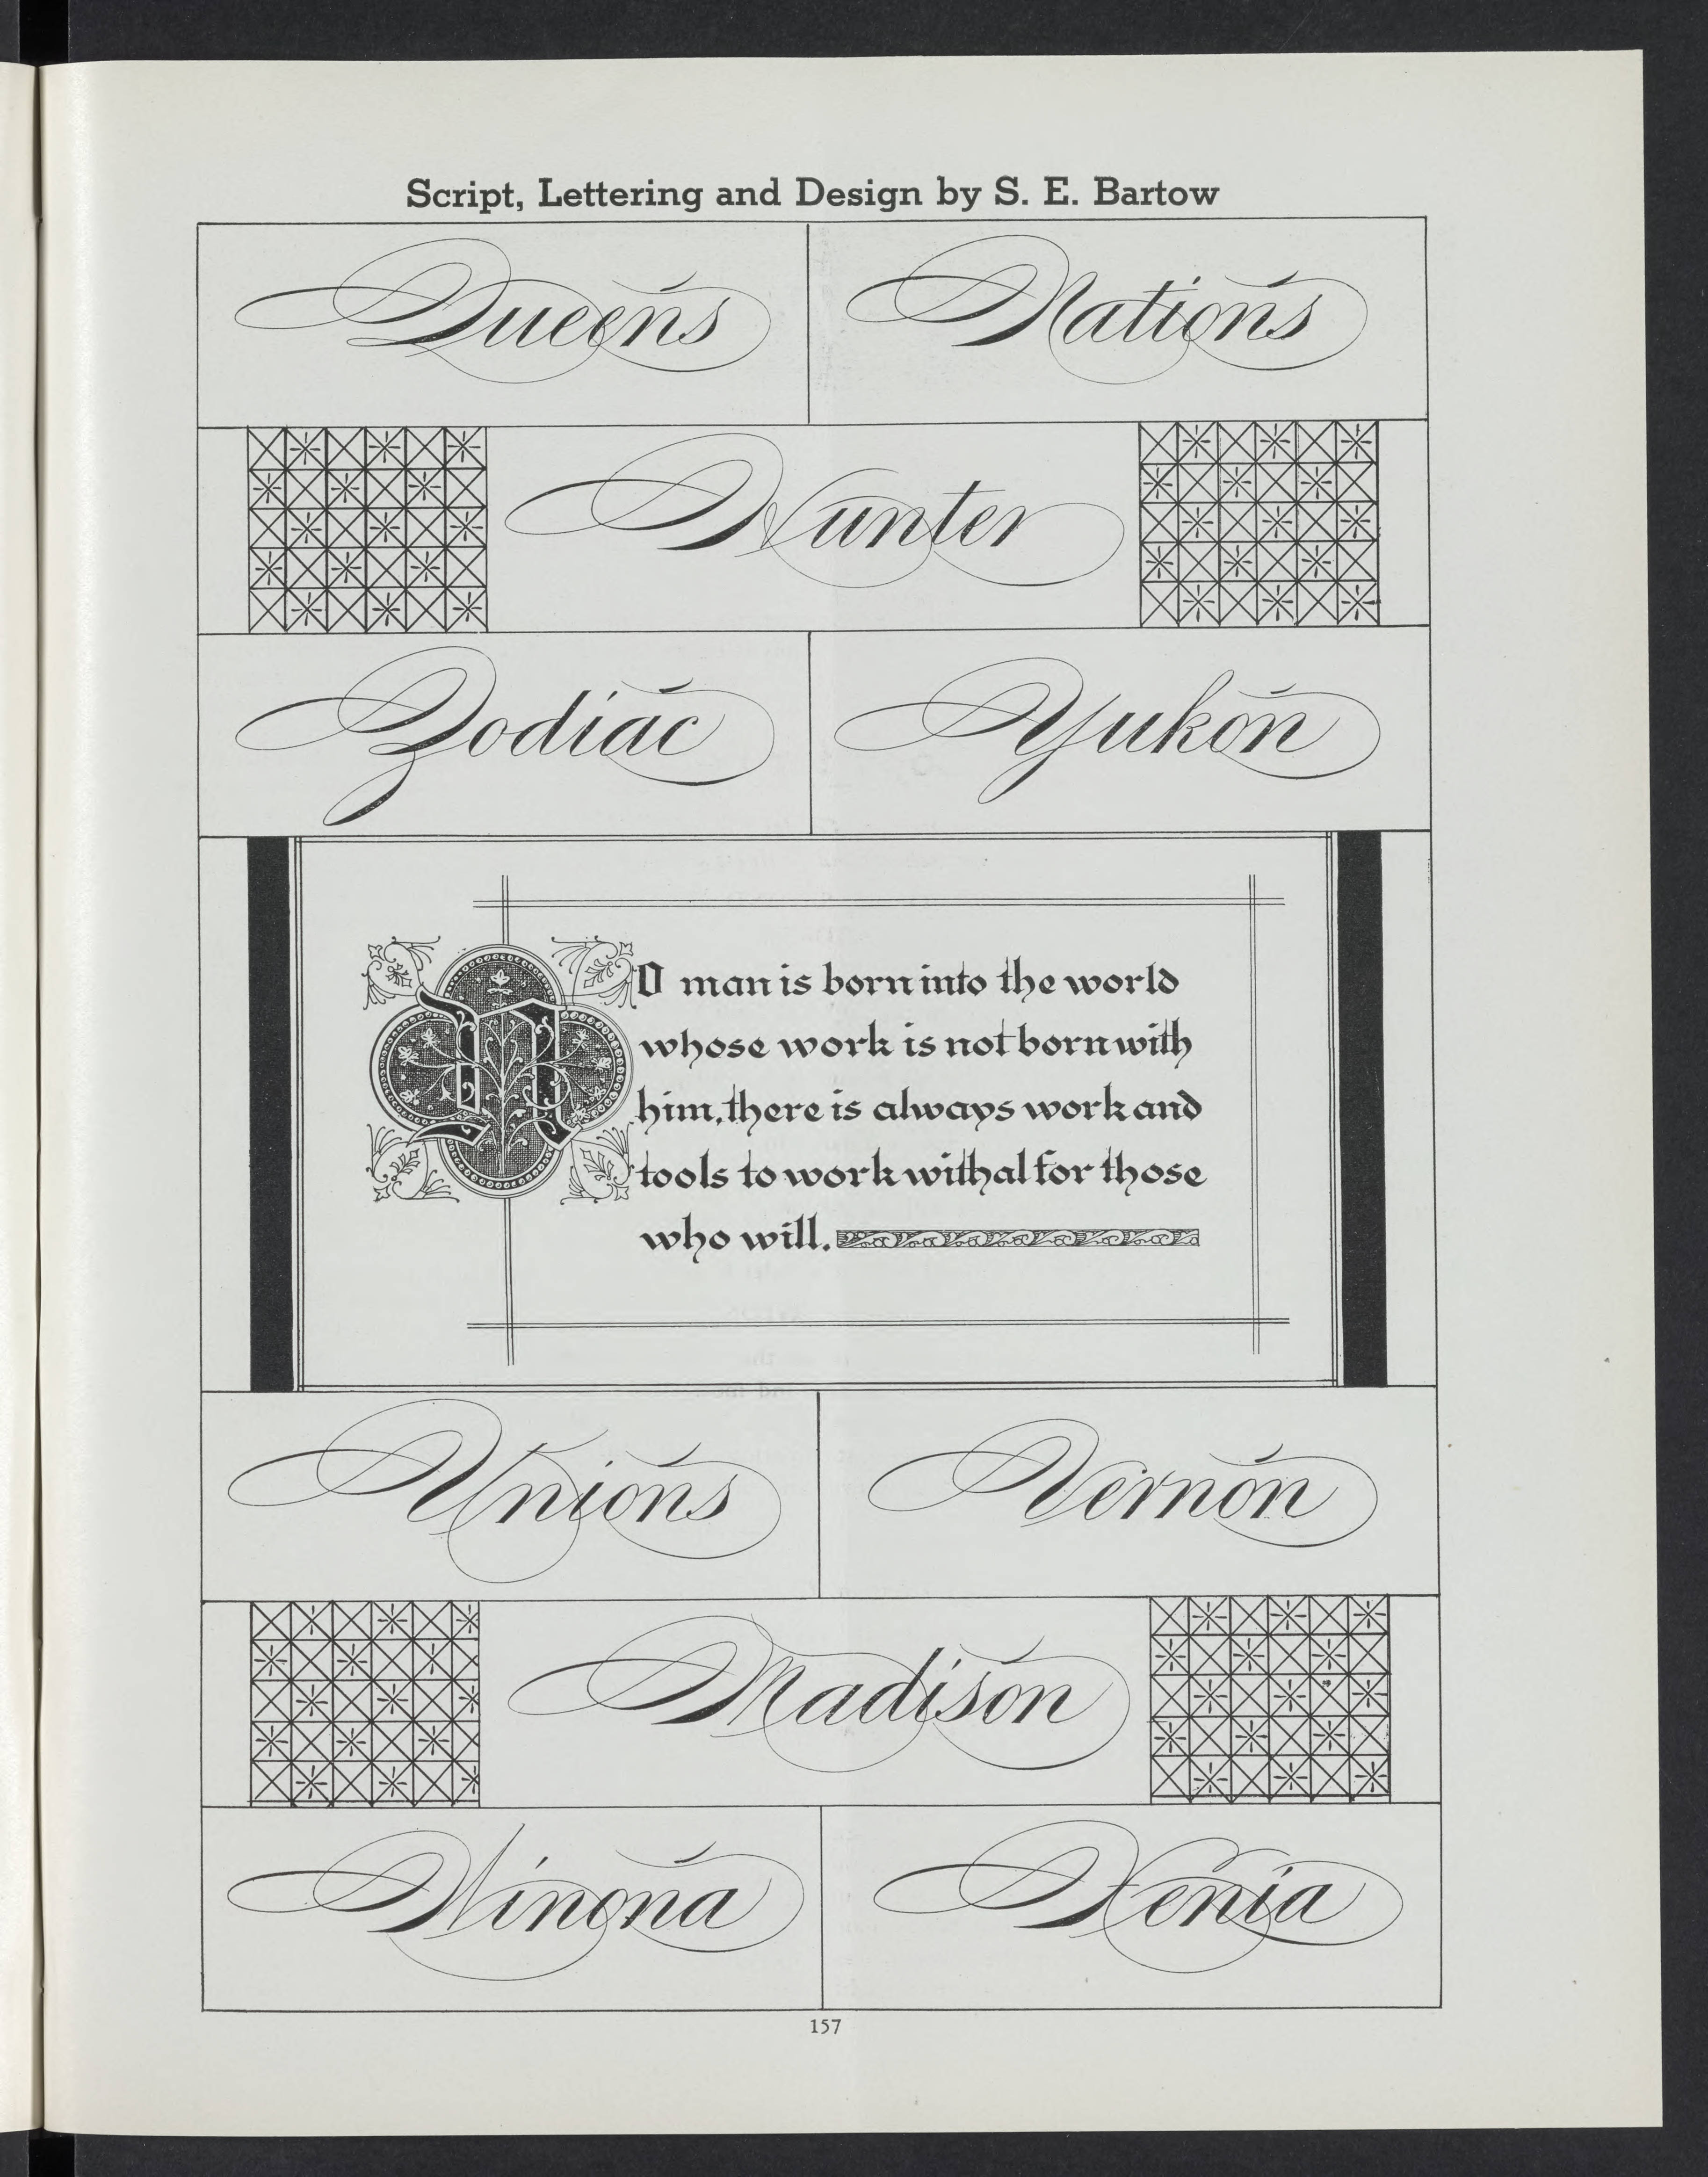 Script, Lettering and Design by S. E. Bartow
Queens
Nations
Hunter
Zodiac
Yukon
NO man is born into the world
whose work is not born with
him, there is always work and
tools to work withal for those
who will.
Unions
Vernon
Madison
Winona
Xenia
157